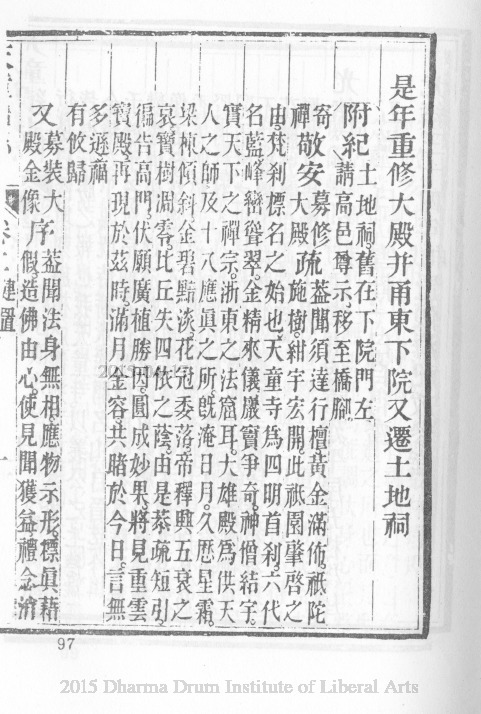 是年重修大殿并甬東下院又遷土地祠
附紀土地祠舊在下院門左
請高邑尊示移至橋腳
寄禪敬安募修大殿疏蓋聞須達行檀黃金滿佈祇陀
施樹紺宇宏開此祇園肇啓之
由梵刹標名之始也天童寺為四明首刹六代
名藍峰巒聳翠金精來儀巖寶爭奇神僧結宇
寶天下之禪宗浙東之法窟耳大雄殿為供天
人之師及十八應眞之所旣淹日月久歷星霜
梁棟傾斜金碧黯淡花冠委落帝釋興五衰之
哀寶樹凋零比丘失四依之蔭由是恭疏短引
徧告高門伏願廣植勝因圓成妙果將見重雲
寶殿再現於茲時滿月金容共睹於今日言無
多遜福
有攸歸
又募裝大殿金像序蓋聞法身無相應物示形標眞藉
假造佛由心使見聞獲益禮念消
卷二 建置
97
2015 Dharma Drum Institute of Liberal Arts